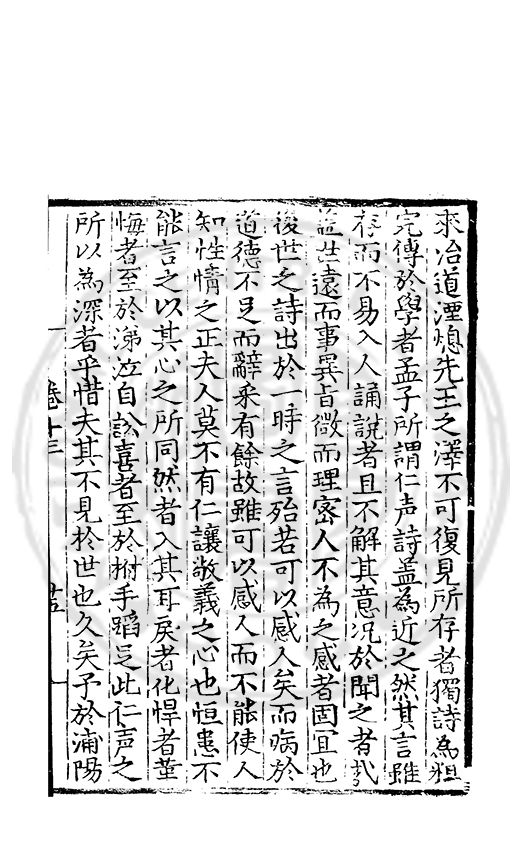 來治道湮熄先王之澤不可復見所存者獨詩為粗
完傳於學者孟子所謂仁声詩盖為近之然其言雖
存而不易入人誦說者且不解其意况於聞之者哉
盖世遠而事異旨微而理密人不為之感者固宜也
後世之詩出於一時之言殆若可以感人矣而病於
道德不足而辭采有餘故雖可以感人而不能使人
知性情之正夫人莫不有仁讓敬義之心也恒患不
能言之以其心之所同然者入其耳戾者化悍者董
悔者至於涕泣自訟喜者至於拊手蹈足此仁声之
所以為深者乎惜夫其不見於世也久矣予於浦陽
卷十三